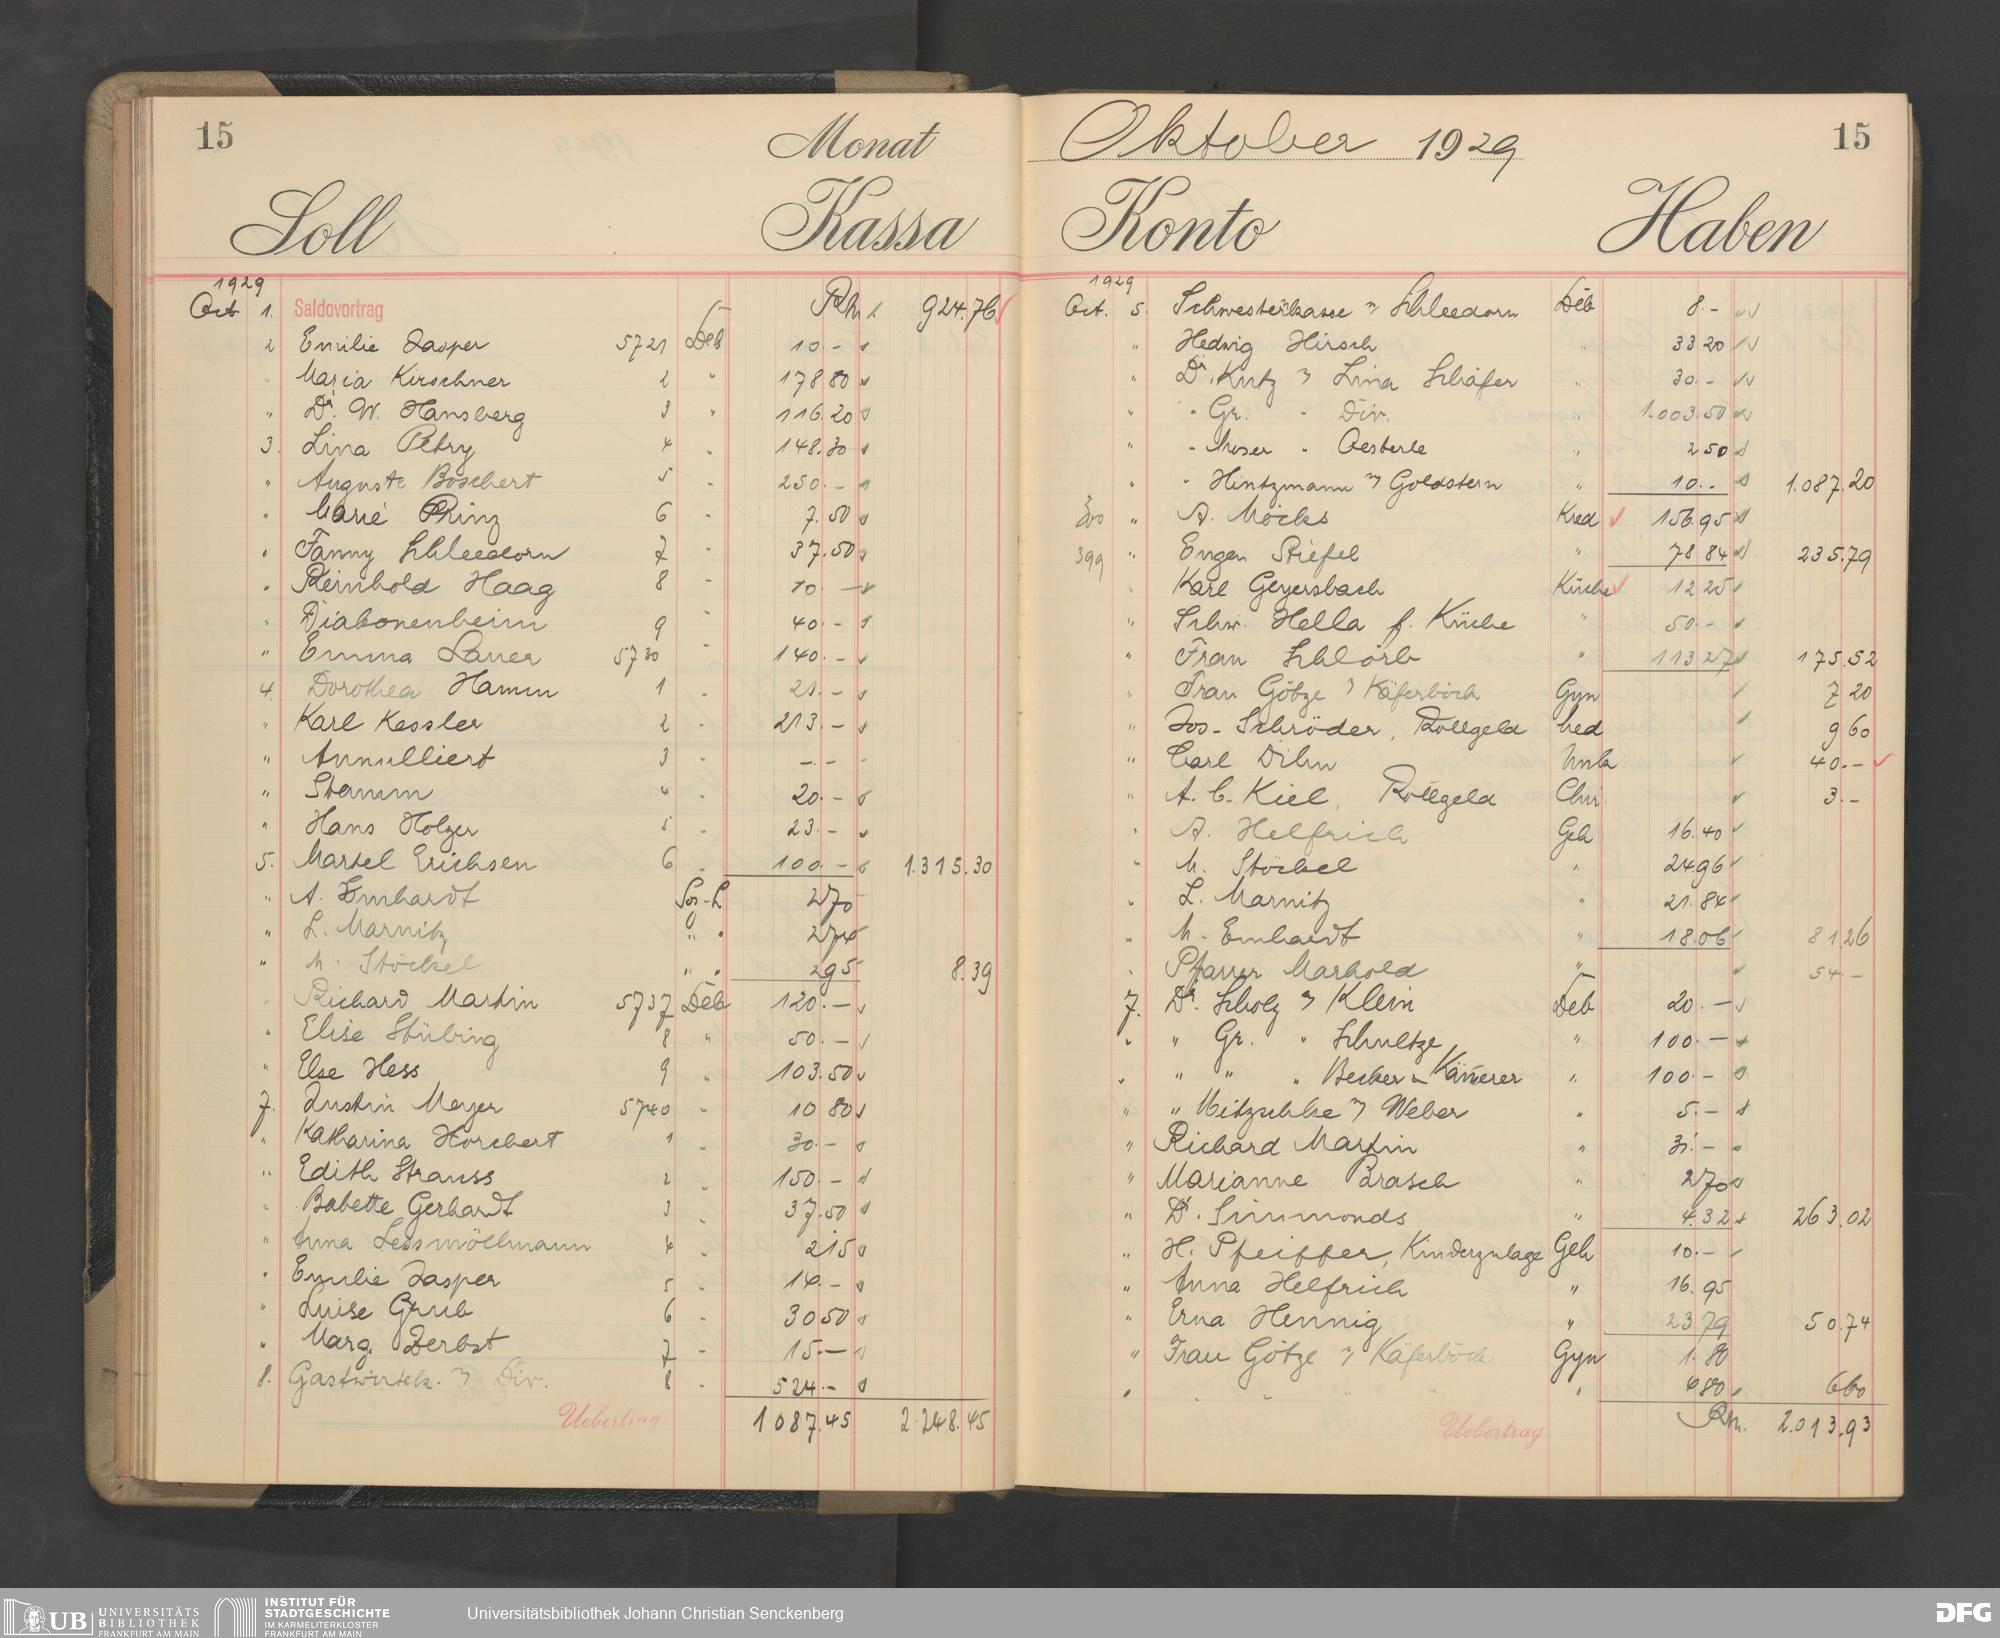 15 Monat
Soll Kassa
1929
Oct 1. Saldovortrag Rm 924.76
2 Emilie Jasper 5721 Deb 10.-
" Maria Kirschner 2 " 178 80
" Dr. W. Hansberg 3 " 116.20
3. Lina Petry 4 " 148.30
" Auguste Boschert 5 250.-
" Marie Prinz 6 " 7.50
" Fanny Schleedorn 7 " 37.50
" Reinhold Haag 8 " 10 -
" Diakonenheim 9 " 40.-
" Emma Lauer 5730 " 140.-
4. Dorothea Hamm 1 " 21.-
" Karl Kessler 2 " 213.-
" Annulliert 3 " -.-
" Stamm 4 " 20.-
" Hans Holzer 5 " 23.-
5. Martel Erichsen 6 " 100.- 1.315.30
" A. Emhardt 2 70
" L. Marnitz " " 2 74
" M. Stöckel " " 2 95 8.39
" Richard Martin 5737 Deb 120.-
" Elise Stübing 8 " 50.-
" Else Hess 9 " 103.50
7. Justin Meyer 5740 " 10 80
" Katharina Horchert 1 " 30.-
" Edith Strauss 2 " 150.-
" Babette Gerhardt 3 " 37.50
" Anna Lessmöllmann 4 " 215
" Emilie Jasper 5 " 14.-
" Luise Grub 6 " 30 50
" Marg. Derbst 7 " 15.-
8. Gastwirtsk. " Div. 8 " 524.-
Uebertrag 1 087.45 2 248.45
Oktober 1929 15
Konto Haben
1929
Oct. 5. Schwesterkasse " Schleedorn Deb 8.-
" Hedwig Hirsch " 33 20
" Dr. Kutz " Lina Schäfer " 30.-
" " Gr. " Div. " 1.003.50
" " Moser " Oesterle " 2 50
" " Hintzmann " Goldstern " 10.- 1.087.20
" A. Möcks Kred 156.95
399 " Eugen Stiefel " 78 84 235.79
" Karl Geyersbach Küche 12 25
" Schw. Hella f. Küche " 50.-
" Frau Schlörb " 113 27 175.52
" Frau Götze " Käferböck Gyn 7 20
" Jos. Schröder, Rollgeld Med 9 60
" Carl Dihn Unk 40.-
" A. C. Kiel, Rollgeld Chir 3.-
" A. Helfrich Geh 16.40
" M. Stöckel " 24.96
" L. Marnitz " 21.84
" M. Emhardt " 18.06 81 26
" Pfarrer Marhold " 54 -
7. Dr. Scholz " Klein Deb 20.-
" " Gr. " Schultze " 100.-
" " " " Becker u Kämerer " 100.-
" " Mitzschke " Weber " 5.-
" Richard Martin " 31.-
" Marianne Brasch " 2 70
" Dr. Simmonds " 4.32 263.02
" H. Pfeiffer, Kinderzulage Geh 10.-
" Anna Helfrich " 16.95
" Erna Hennig " 23 79 50.74
" Frau Götze " Käferböck Gyn 1.80
" " " " " " 4 80 6 60
Uebertrag Rm. 2.013.93
UB UNIVERSITÄTS
BIBLIOTHEK
FRANKFURT AM MAIN
INSTITUT FÜR
STADTGESCHICHTE
IM KARMELITERKLOSTER
FRANKFURT AM MAIN
Universitätsbibliothek Johann Christian Senckenberg
DFG